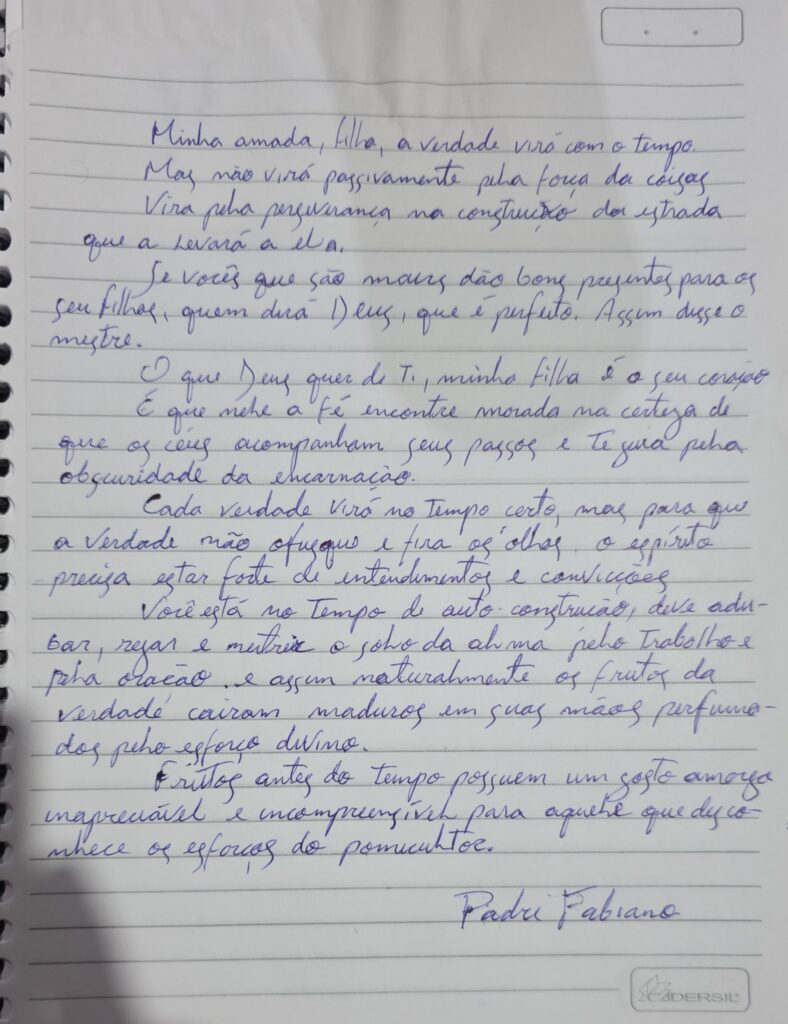 Minha amada, filha, a verdade virá com o tempo.
Mas não virá passivamente pela força da coisas
Vira pela perseverança na construção da estrada
que a levará a ela.
Se vocês que são maus dão bons presentes para os
seu filhos, quem dirá Deus, que é perfeito. Assim disse o
mestre.
O que Deus quer de Ti, minha filha é o seu coração
E que nele a fé encontre morada na certeza de
que os céus acompanham seus passos e te guia pela
obscuridade da encarnação.
Cada verdade virá no tempo certo, mas para que
a verdade não ofusque e fira os olhos, o espírito
precisa estar forte de entendimentos e convicções
Você está no tempo de auto-construcão, deve adu-
bar, regar e nutrir o solo da alma pelo trabalho e
pela oração, e assim naturalmente os frutos da
verdade cairam maduros em suas mãos perfuma-
dos pelo esforço divino.
Frutos antes do tempo possuem um gosto amorgo
inapreciável e incompreensível para aquele que desco-
nhece os esforços do pomicultor.
Padre Fabiano
CADERSIL